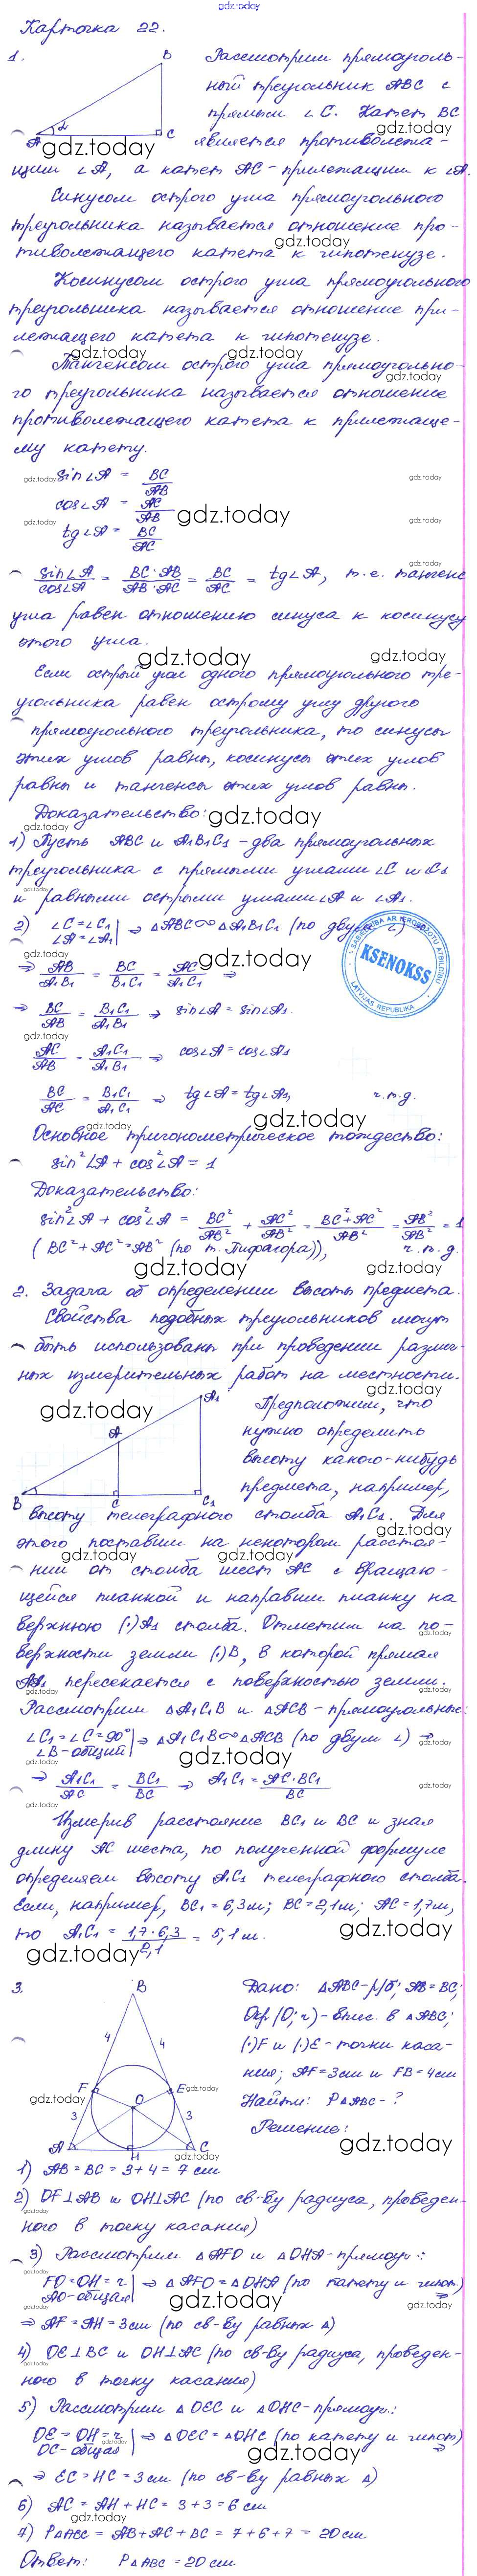 gdz.today
Карточка 22.
1. Рассмотрим прямоуголь-
ный треугольник ABC с
прямым ∠C. Катет BC
является противолежа-
щим ∠A, а катет AC - прилежащим к ∠A.
Синусом острого угла прямоугольного
треугольника называется отношение про-
тиволежащего катета к гипотенузе.
Косинусом острого угла прямоугольного
треугольника называется отношение при-
лежащего катета к гипотенузе.
Тангенсом острого угла прямоугольно-
го треугольника называется отношение
противолежащего катета к прилежаще-
му катету.
sin∠A = BC/AB
cos∠A = AC/AB
tg∠A = BC/AC
sin∠A/cos∠A = BC·AB/AB·AC = BC/AC = tg∠A, т.е. тангенс
угла равен отношению синуса к косинусу
этого угла.
Если острый угол одного прямоугольного тре-
угольника равен острому углу другого
прямоугольного треугольника, то синусы
этих углов равны, косинусы этих углов
равны и тангенсы этих углов равны.
Доказательство:
1) Пусть ABC и A1B1C1 - два прямоугольных
треугольника с прямыми углами ∠C и ∠C1
и равными острыми углами ∠A и ∠A1.
2) ∠C=∠C1
∠A=∠A1 | ⇒ △ABC∞△A1B1C1 (по двум ∠) ⇒
⇒ AB/A1B1 = BC/B1C1 = AC/A1C1 ⇒
⇒ BC/AB = B1C1/A1B1 ⇒ sin∠A = sin∠A1.
AC/AB = A1C1/A1B1 ⇒ cos∠A = cos∠A1
BC/AC = B1C1/A1C1 ⇒ tg∠A = tg∠A1, ч.т.д.
Основное тригонометрическое тождество:
sin²∠A + cos²∠A = 1
Доказательство:
sin²∠A + cos²∠A = BC²/AB² + AC²/AB² = BC²+AC²/AB² = AB²/AB² = 1
(BC²+AC²=AB² (по т. Пифагора)), ч.т.д.
2. Задача об определении высоты предмета.
Свойства подобных треугольников могут
быть использованы при проведении различ-
ных измерительных работ на местности.
Предположим, что
нужно определить
высоту какого-нибудь
предмета, например,
высоту телеграфного столба A1C1. Для
этого поставим на некотором расстоя-
нии от столба шест AC с вращаю-
щейся планкой и направим планку на
верхнюю (·)A1 столба. Отметим на по-
верхности земли (·)B, в которой прямая
AA1 пересекается с поверхностью земли.
Рассмотрим △A1C1B и △ACB - прямоугольные:
∠C1=∠C=90°
∠B-общий | ⇒ △A1C1B∞△ACB (по двум ∠) ⇒
⇒ A1C1/AC = BC1/BC ⇒ A1C1 = AC·BC1/BC
Измерив расстояние BC1 и BC и зная
длину AC шеста, по полученной формуле
определяем высоту A1C1 телеграфного столба.
Если, например, BC1 = 6,3м; BC=2,1м; AC=1,7м,
то A1C1 = 1,7·6,3/2,1 = 5,1м.
3. Дано: △ABC-р/б; AB=BC;
Окр(O; r)-впис. в △ABC;
(·)F и (·)E - точки каса-
ния; AF=3см и FB=4см
Найти: P△ABC-?
Решение:
1) AB = BC = 3+4 = 7 см
2) OF⊥AB и OH⊥AC (по св-ву радиуса, проведен-
ного в точку касания)
3) Рассмотрим △AFO и △OHA-прямоуг.:
FO=OH=r
AO-общая | ⇒ △AFO=△OHA (по катету и гипот.) ⇒
⇒ AF=AH=3см (по св-ву равных △)
4) OE⊥BC и OH⊥AC (по св-ву радиуса, проведен-
ного в точку касания)
5) Рассмотрим △OEC и △OHC-прямоуг.:
OE=OH=r
OC-общая | ⇒ △OEC=△OHC (по катету и гипот) ⇒
⇒ EC=HC=3см (по св-ву равных △)
6) AC = AH+HC = 3+3=6 см
7) P△ABC = AB+AC+BC = 7+6+7 = 20см
Ответ: P△ABC = 20 см
KSENOKSS
LATVIJAS REPUBLIKA
SABIEDRĪBA AR IEROBEŽOTU ATBILDĪBU